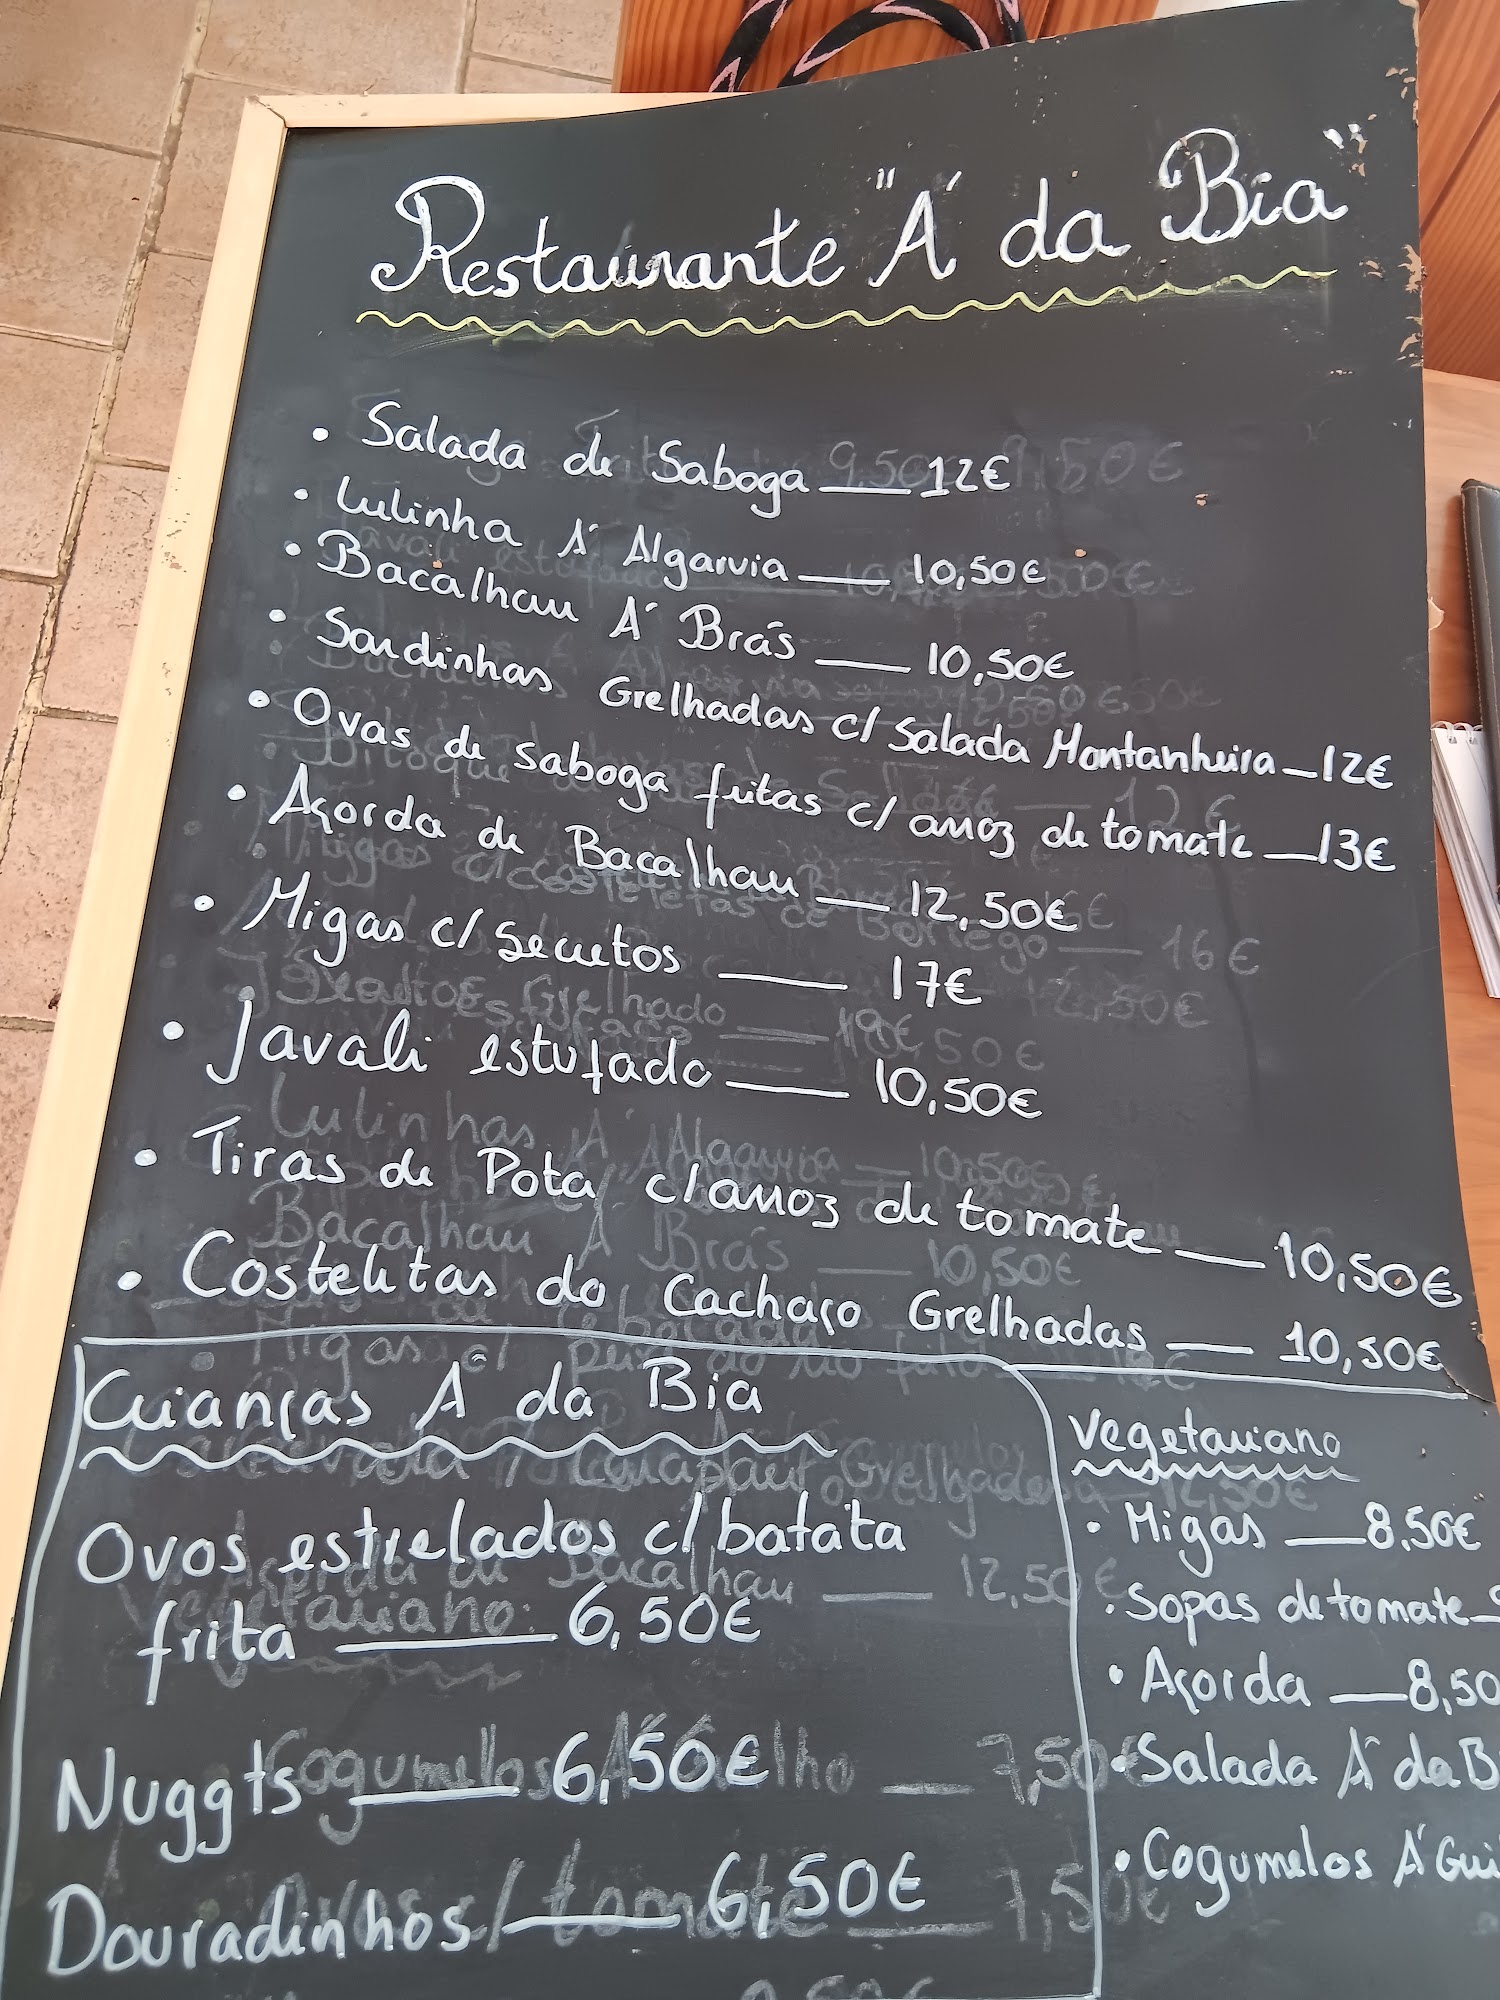 Restaurante "Á da Bia"
• Salada de Saboga — 12€
• Lulinha Á Algarvia — 10,50€
• Bacalhau Á Brás — 10,50€
• Sardinhas Grelhadas c/ Salada Montanheira — 12€
• Ovas de saboga fritas c/ arroz de tomate — 13€
• Açorda de Bacalhau — 12,50€
• Migas c/ secretos — 17€
• Javali estufado — 10,50€
• Tiras de Pota c/ arroz de tomate — 10,50€
• Costeletas do Cachaço Grelhadas — 10,50€
Crianças Á da Bia
Ovos estrelados c/ batata
frita — 6,50€
Nuggts — 6,50€
Douradinhos — 6,50€
Vegetariano
• Migas — 8,50€
• Sopas de tomate —
• Açorda — 8,50
• Salada Á da B
• Cogumelos Á Gui